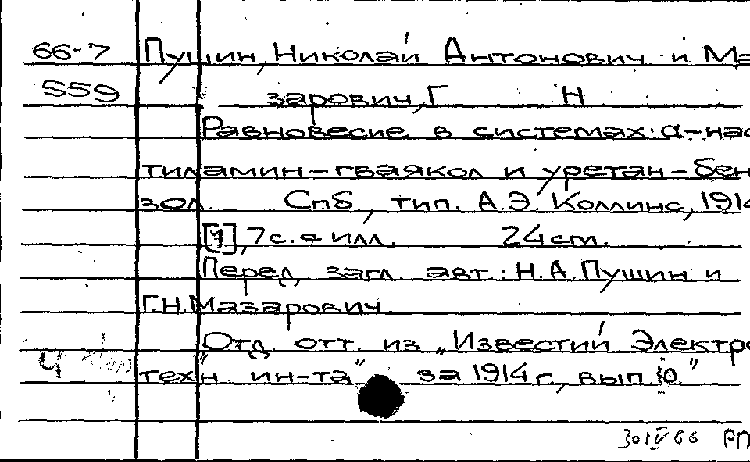 66-7 Пушин, Николай Антонович и Ма
559 зарович, Г Н
Равновесие в системах: α-наф
тиламин-гваякол и уретан-бен
зол. Спб, тип. А.Э. Коллинс, 1914
[1], 7 с. с илл. 24 cm.
Перед загл. авт.: Н.А. Пушин и
Г.Н. Мазарович
Отд. отт. из „Известий Электро
техн. ин-та" за 1914 г., вып 10."
Ч
30 IV 66 РП